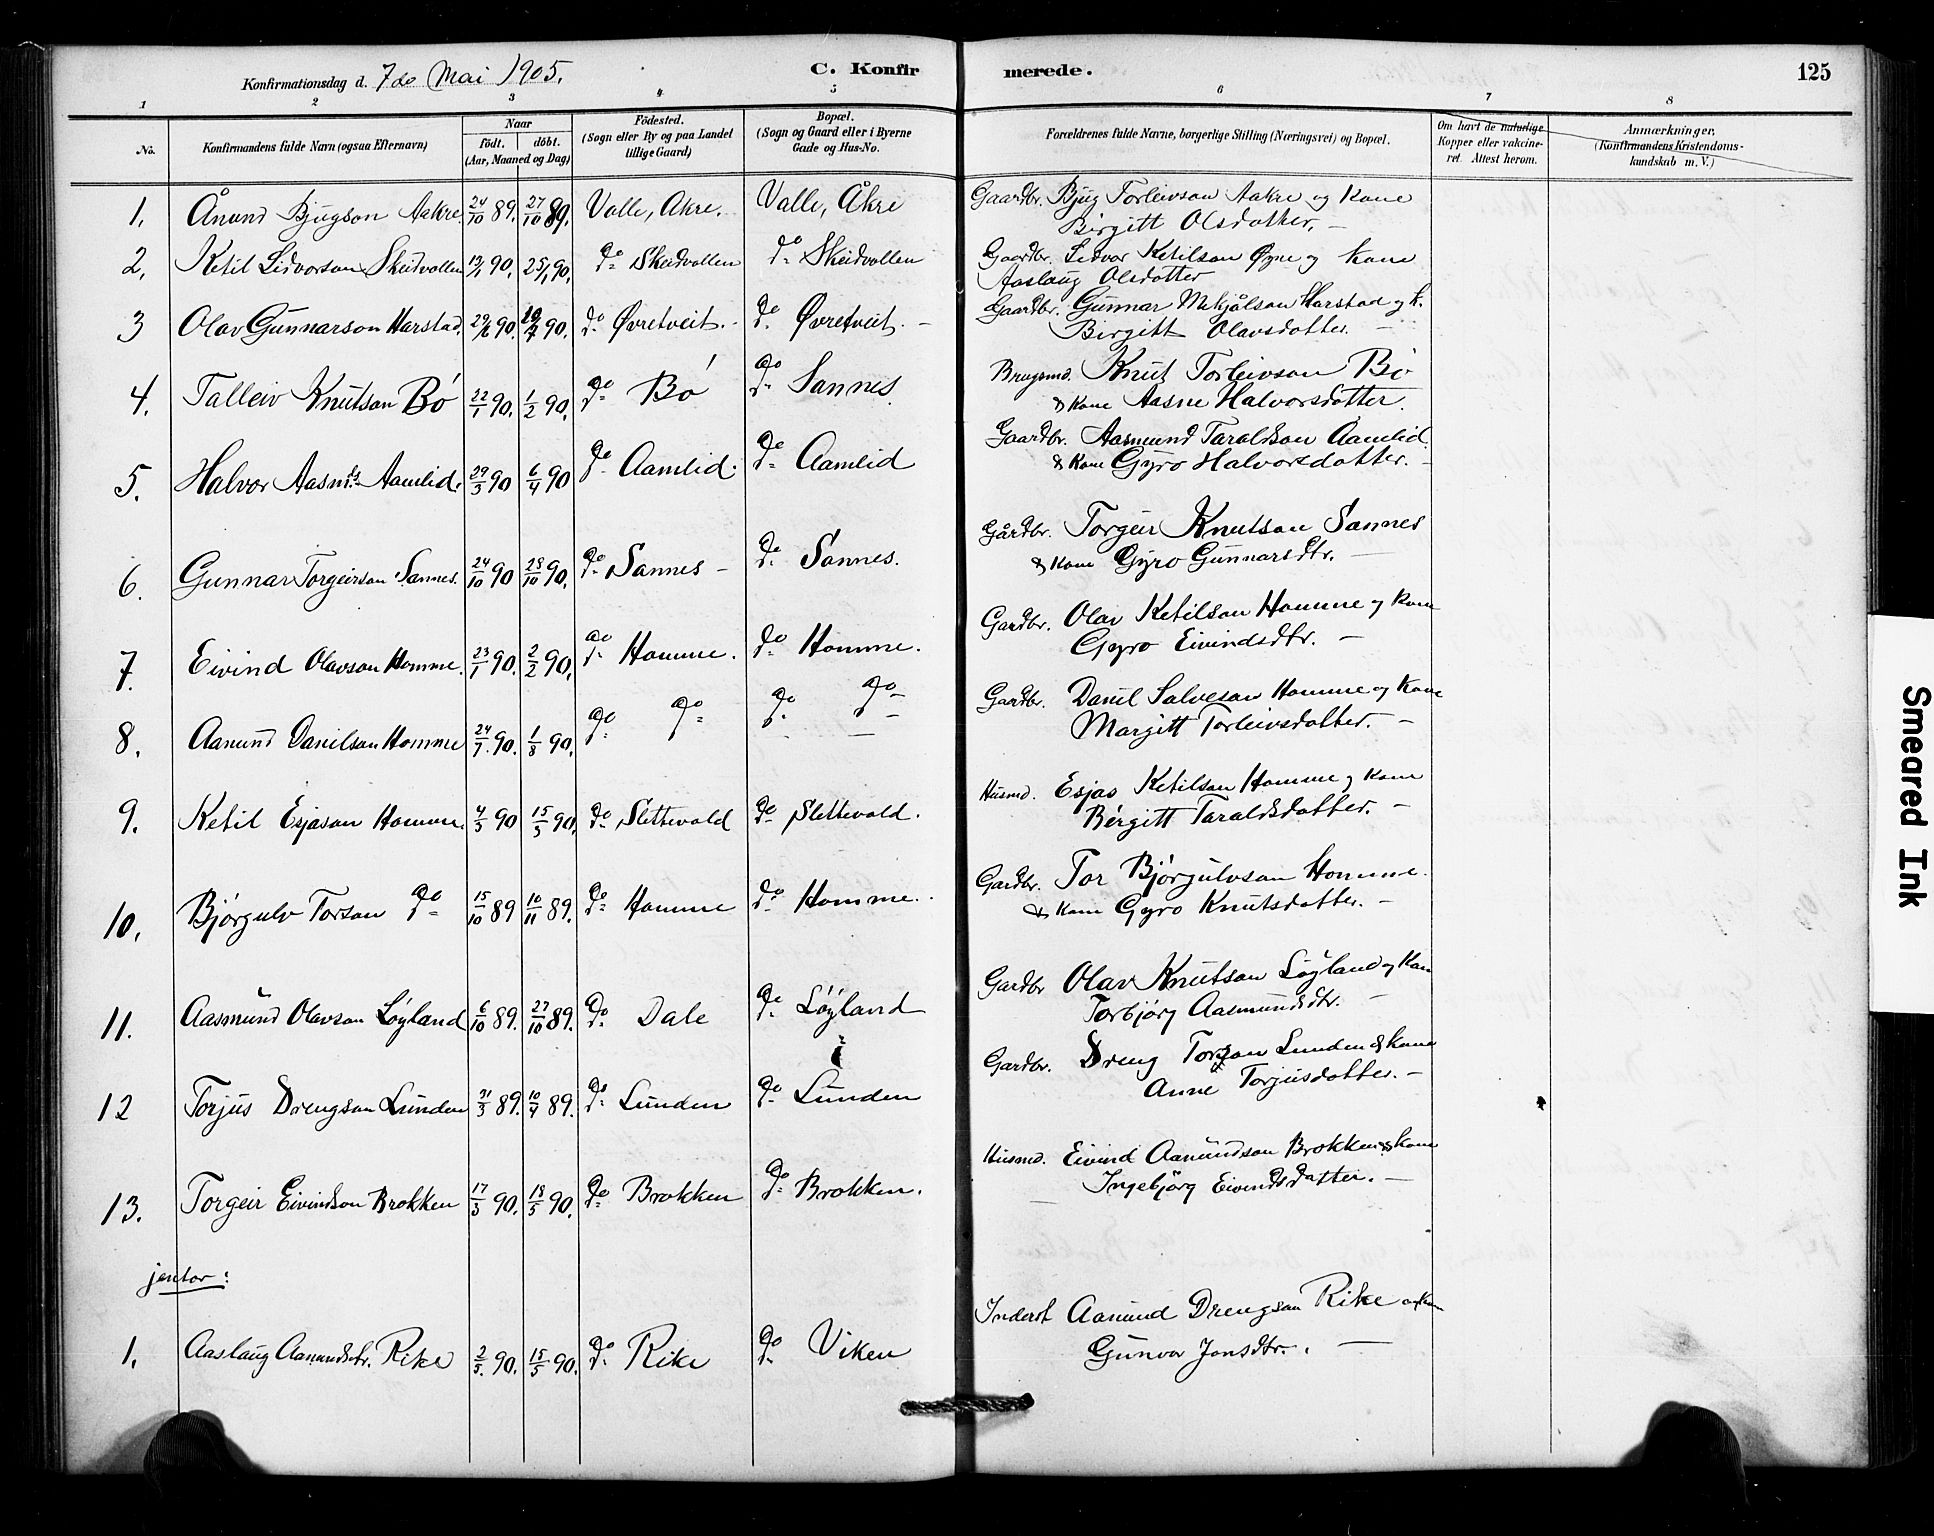 Konfirmationsdag d. 7de Mai 1905. C. Konfirmerede. 125
1 2 3 4 5 6 7 8
No. Konfirmandens fulde Navn (ogsaa Efternavn) Naar födt. döbt. (Aar, Maaned og Dag) Födested. (Sogn eller By og paa Landet tillige Gaard) Bopæl. (Sogn og Gaard eller i Byerne Gade og Hus-No. Forældrenes fulde Navne, borgerlige Stilling (Næringsvei) og Bopæl. Om havt de naturlige Kopper eller vakcineret. Attest herom. Anmærkninger. (Konfirmandens Kristendomskundskab m. V.)
1. Ånund Bjugson Aakre. 24/10 89. 27/10 89. Valle, Akre. Valle, Åkre Gaardbr. Bjug Torleivson Aakre og Kone
Birgitt Olsdatter. –
2. Ketil Lidvorson Skeidvollen 13/1 90. 25/1 90. do Skeidvollen do Skeidvollen Gaardbr. Lidvor Ketilson Øyne og Kone
Aaslaug Olsdatter
3 Olav Gunnarson Harstad. 29/6 90. 90. do Øvretveit. – do Øvretveit. – Gaardbr. Gunnar Mikjålson Harstad og k.
Birgitt Olavsdotter. –
4. Talleiv Knutson Bó 22/1 90. 1/2 90. do Bó do Sannes. Brugsmd. Knut Torleivson Bó
& Kone Aasne Halvorsdotter.
5. Halvor Aasmds. Aamlid. 29/3 90 6/4 90 do Aamlid. do Aamlid Gaardbr. Aasmund Taraldson Aamlid.
& Kone Gyro Halvorsdotter. –
6. Gunnar Torgeirson Sannes. 24/10 90 28/10 90. do Sannes – do Sannes. Gårdbr. Torgeir Knutson Sannes
& Kone Gyro Gunnarsdtr. –
7. Eivind Olavson Homme. 23/1 90. 2/2 90. do Homme. do Homme. Gardbr. Olav Ketilson Homme og Kone
Gyro Eivindsdtr. –
8. Aanund Danilson Homme 24/7 90. 1/8 90. do do do do Gardbr. Danil Salveson Homme og Kone
Margitt Torleivsdotter. –
9. Ketil Esjason Homme. 4/3 90 15/3 90. do Slettevold do Slettevold. Husmd. Esjas Ketilson Homme og Kone
Bérgitt Taraldsdotter. –
10. Bjórgulv Torson do 15/10 89 10/11 89. do Homme do Homme. Gardbr. Tor Bjórgulvson Homme.
& Kone Gyro Knutsdotter. –
11. Aasmund Olavson Lóyland 6/10 89. 27/10 89. do Dale do Lóyland Gardbr Olav Knutson Lóyland og Kone
Torbjórg Aasmundsdtr. –
12 Torjus Drengson Lunden 31/3 89. 10/4 89. do Lunden do Lunden Gardbr. Dreng Torson Lunden & Kone
Anne Torjusdotter. –
13. Torgeir Eivindson Brokken 17/3 90. 18/5 90. do Brokken do Brokken. Husmd. Eivind Aanundson Brokken & Kone
Ingebjórg Eivindsdatter. –
jentor:
1. Aaslaug Aanundsdtr. Rike 2/5. 90. 15/5 90. do Rike do Viken Inderst Aanund Drengson Rike og Kone
Gunvor Jonsdtr. –
Smeared Ink